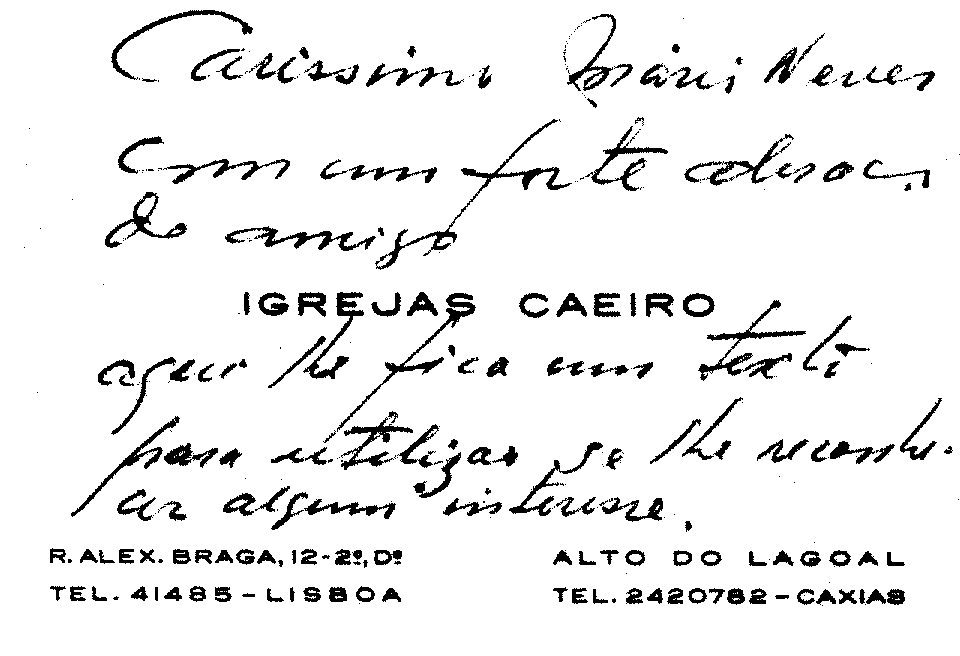 Caríssimo Mário Neves
Com um forte abraço
do amigo
IGREJAS CAEIRO
aqui lhe fica um texto
para utilizar se lhe reconhe-
cer algum interesse.
R. ALEX. BRAGA, 12-2º, Dº ALTO DO LAGOAL
TEL. 41485 - LISBOA TEL. 2420782 - CAXIAS